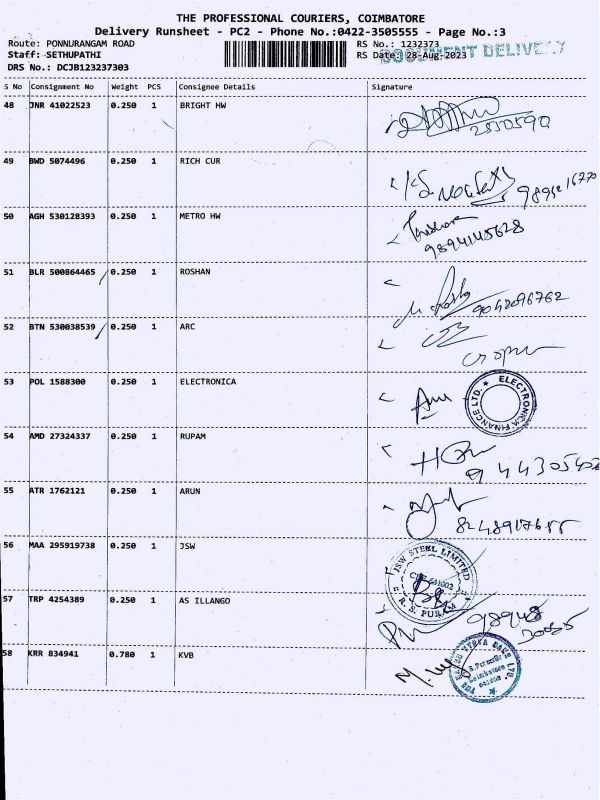 THE PROFESSIONAL COURIERS, COIMBATORE
Delivery Runsheet - PC2 - Phone No.:0422-3505555 - Page No.:3
Route: PONNURANGAM ROAD
RS No.: 1232373
Staff: SETHUPATHI
RS Date: 28-Aug-2023
DOCUMENT DELIVERY
DRS No.: DCJB123237303
S No Consignment No Weight PCS Consignee Details Signature
48 JNR 41022523 0.250 1 BRIGHT HW
2530590
49 BWD 5074496 0.250 1 RICH CUR
50 AGH 530128393 0.250 1 METRO HW
9894145628
51 BLR 500864465 0.250 1 ROSHAN
9042096762
52 BTN 530038539 0.250 1 ARC
53 POL 1588300 0.250 1 ELECTRONICA
ELECTRONICA FINANCE LTD.
54 AMD 27324337 0.250 1 RUPAM
55 ATR 1762121 0.250 1 ARUN
56 MAA 295919738 0.250 1 JSW
JSW STEEL LIMITED
CBE-641002
R. S. PURAM
57 TRP 4254389 0.250 1 AS ILLANGO
58 KRR 834941 0.780 1 KVB
THE KARUR VYSYA BANK LTD.
Coimbatore